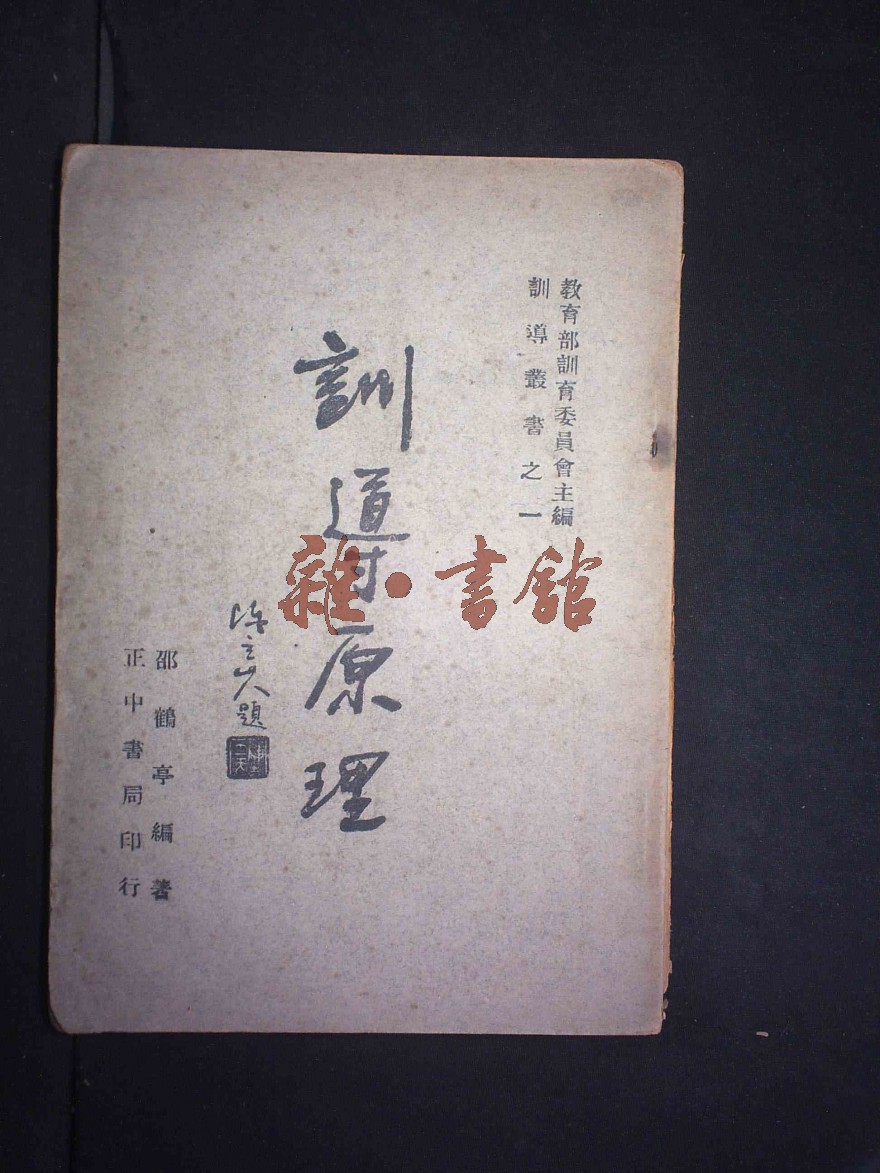 教育部訓育委員會主編
訓導叢書之一
訓導原理
陳立夫題
邵鶴亭編著
正中書局印行
雜·書館